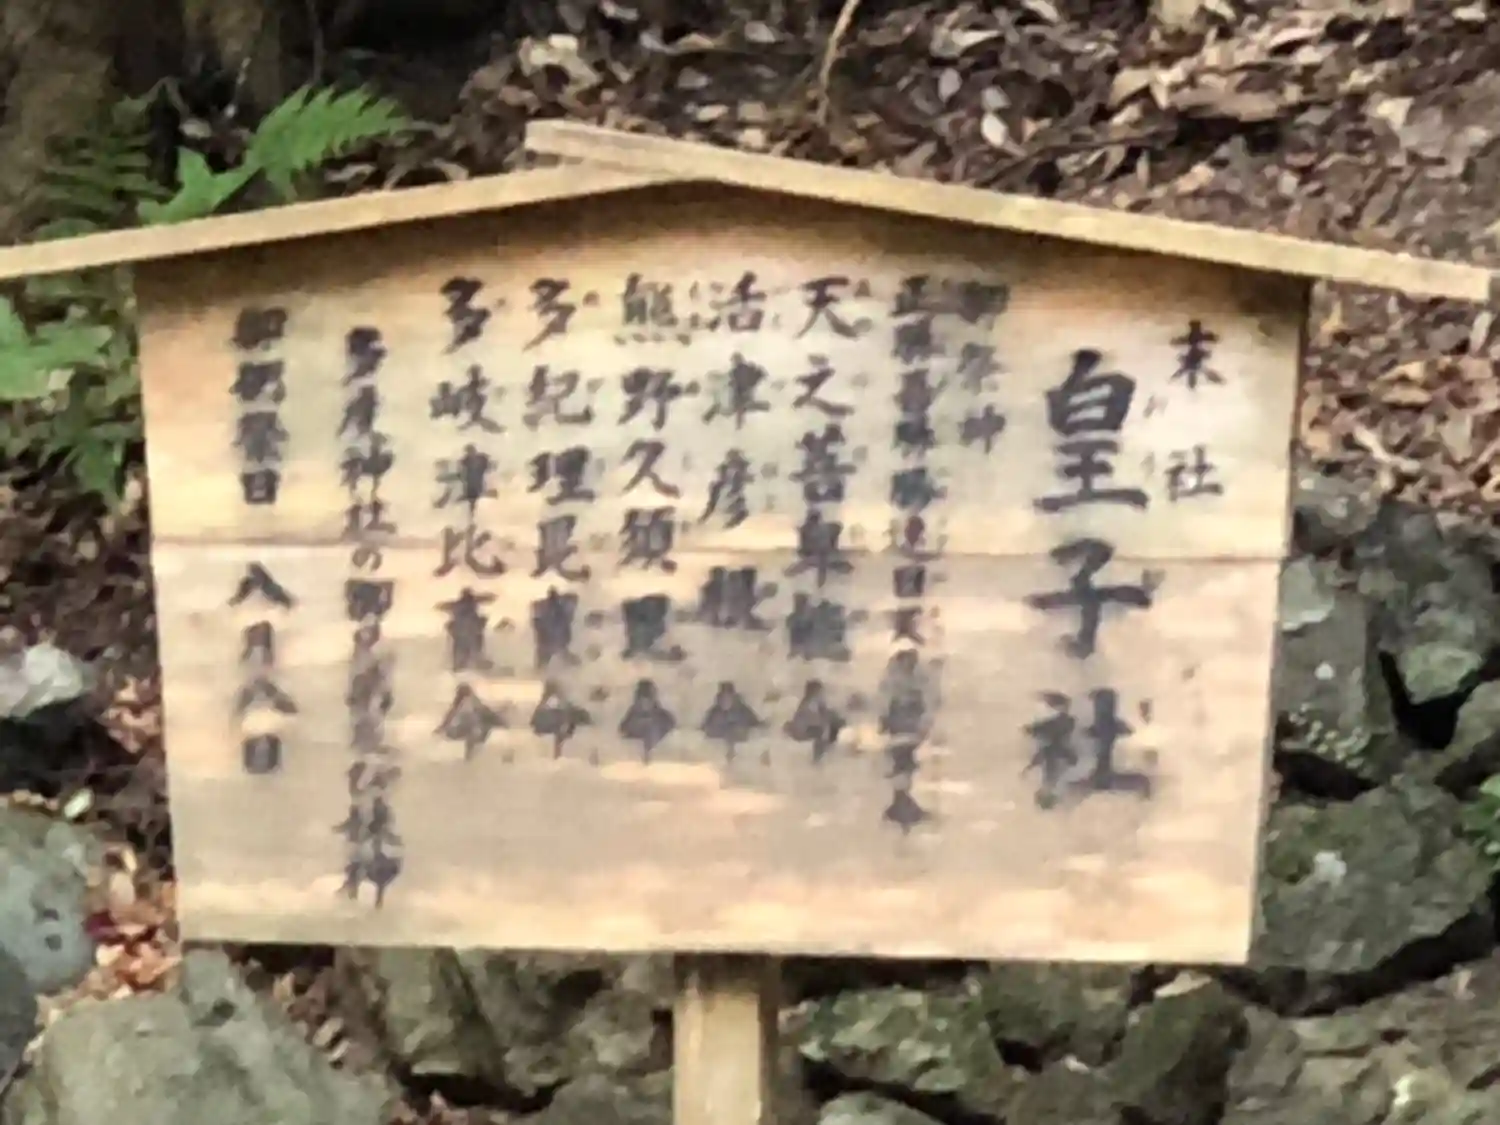 末社
皇子社
御祭神
正勝吾勝勝速日天之忍穂耳命
天之菩卑能命
活津彦根命
熊野久須毘命
多紀理毘賣命
多岐津比賣命
多度神社の御兄弟及び妹神
御例祭日 八月八日